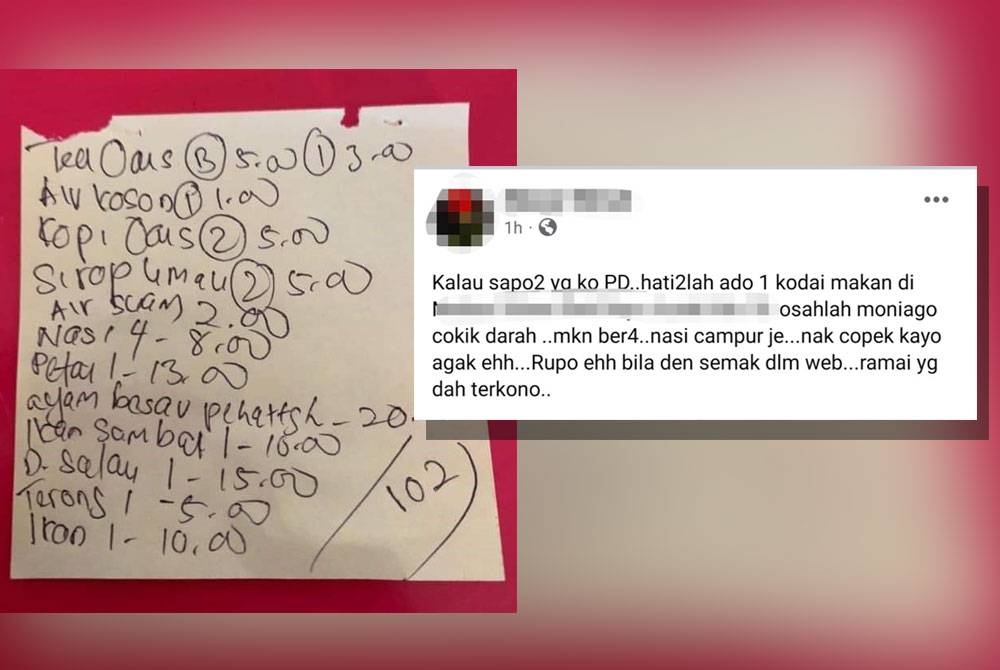 Tea Oais (B) 5.00 (1) 3.00
Air Koson (1) 1.00
Kopi Oais (2) 5.00
Sirop Limau (2) 5.00
Air suam 2.00
Nasi 4 - 8.00
Petai 1 - 13.00
ayam besar - 20.
Ikan Sambal 1 - 10.00
D. Salay 1 - 15.00
Terong 1 - 5.00
Ikan 1 - 10.00
102
1h ·
Kalau sapo2 yg ko PD..hati2lah ado 1 kodai makan di
osahlah moniago
cokik darah ..mkn ber4..nasi campur je...nak copek kayo
agak ehh...Rupo ehh bila den semak dlm web...ramai yg
dah terkono..